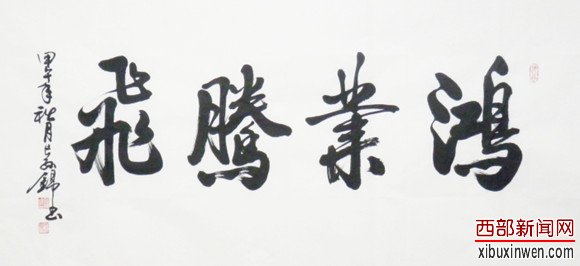 鴻業騰飛
甲午年秋月
錦書
西部新闻网
xibuxinwen.com